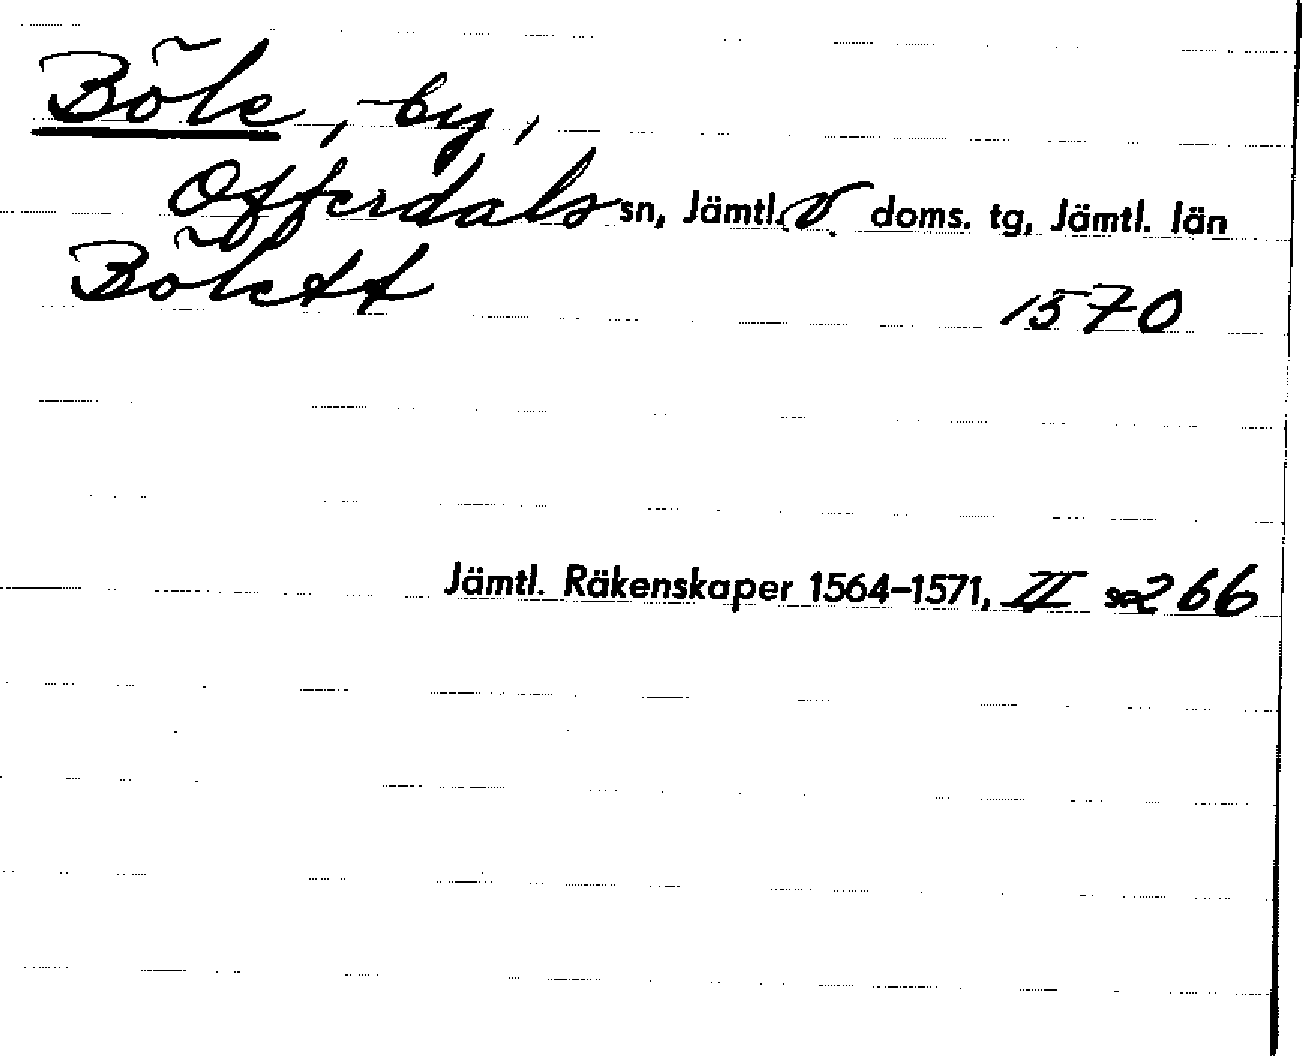 Böle, by,
Offerdals sn, Jämtl. v. doms. tg, Jämtl. län
Bölett 1570
Jämtl. Räkenskaper 1564–1571, II s. 266